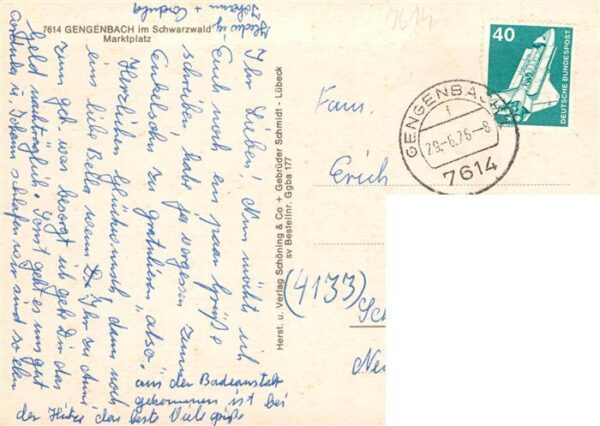 7614 GENGENBACH im Schwarzwald
Marktplatz
Ihr Lieben! Nun möcht ich
Euch noch ein paar Grüße
schreiben, habe ja vergessen zum
zu gratulieren also.
Herzlichen Glückwunsch dann noch
eins liebe Bella wenn Du
zum geb. was besorgt ich gebe Dir das
Geld nachträglich. Sonst geht es uns gut
Cordula u. Johann schlafen wir sind so eben
aus der Badeanstalt
gekommen ist bei
der Hitze das beste Viele Grüße
Hedw
Johann + Cordula
Herst. u. Verlag Schöning & Co + Gebrüder Schmidt - Lübeck
sv Bestellnr. Ggba 177
7614
40
DEUTSCHE BUNDESPOST
GENGENBACH
1
29.-6.76--8
7614
Fam.
Erich
(4133)
Sch
Neu